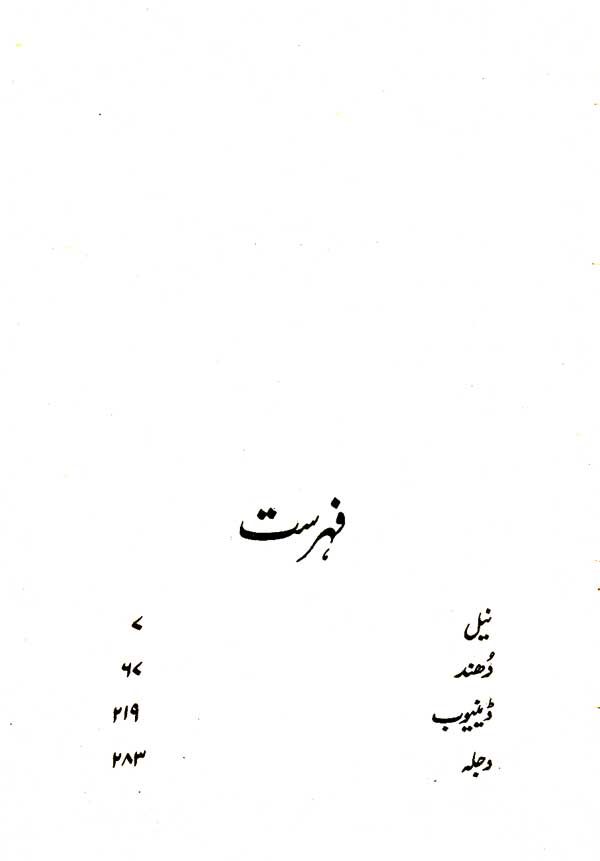 فہرست
نیل ۷
دُھند ۶۷
ڈینیوب ۲۱۹
دجلہ ۲۸۳